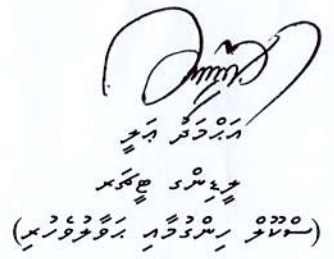 އަޙްމަދު ޢަލީ
ލީޑިންގ ޓީޗަރ
(ސްކޫލް ހިންގުމާއި ޙަވާލުވެހުރި)